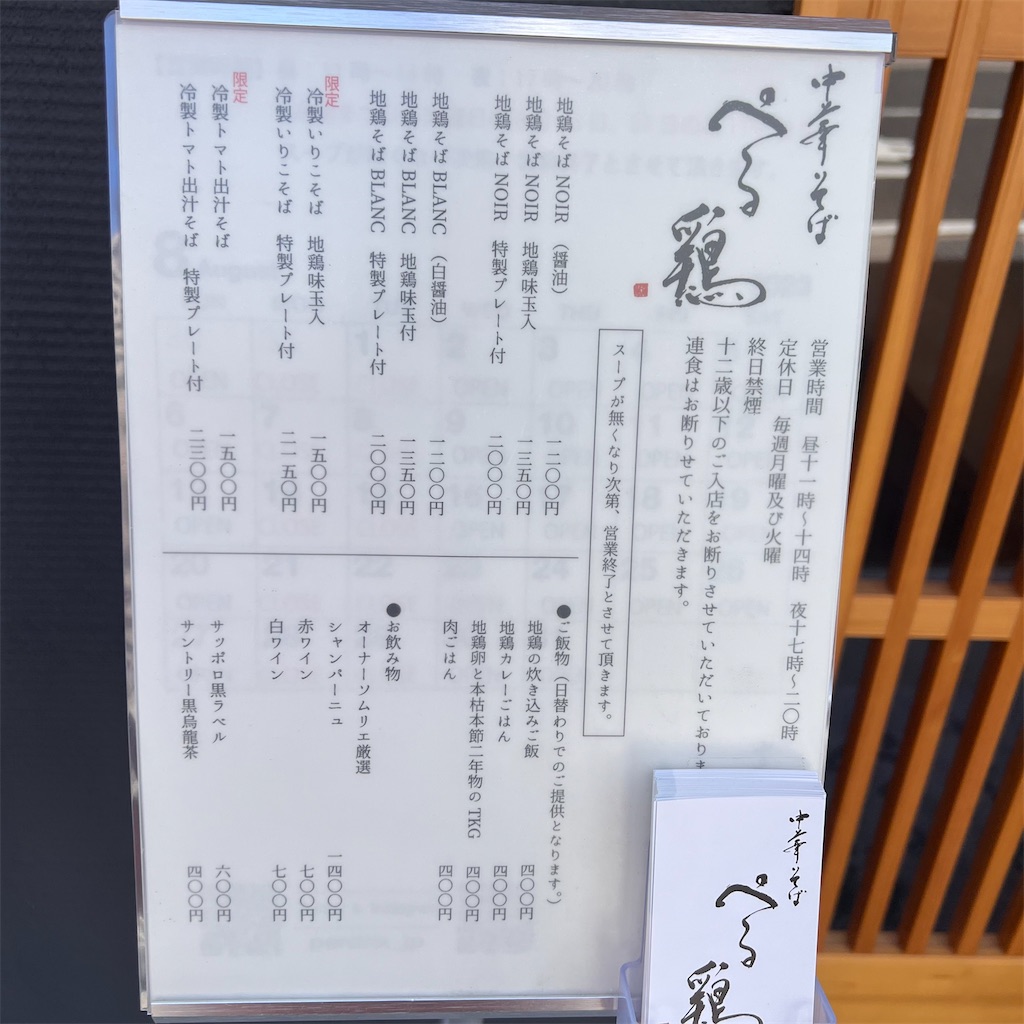 中華そば
ぺる鶏
営業時間　昼十一時〜十四時　夜十七時〜二〇時
定休日　毎週月曜及び火曜
終日禁煙
十二歳以下のご入店をお断りさせていただいておりま
連食はお断りせていただきます。
スープが無くなり次第、営業終了とさせて頂きます。
地鶏そば NOIR （醤油）　一二〇〇円
地鶏そば NOIR　地鶏味玉入　一三五〇円
地鶏そば NOIR　特製プレート付　二〇〇〇円
地鶏そば BLANC （白醤油）　一二〇〇円
地鶏そば BLANC　地鶏味玉付　一三五〇円
地鶏そば BLANC　特製プレート付　二〇〇〇円
限定
冷製いりこそば　地鶏味玉入　一五〇〇円
冷製いりこそば　特製プレート付　二一五〇円
限定
冷製トマト出汁そば　一五〇〇円
冷製トマト出汁そば　特製プレート付　二三〇〇円
●ご飯物（日替わりでのご提供となります。）
地鶏の炊き込みご飯　四〇〇円
地鶏カレーごはん　四〇〇円
地鶏卵と本枯本節二年物の TKG　四〇〇円
肉ごはん　四〇〇円
●お飲み物
オーナーソムリエ厳選
シャンパーニュ　一四〇〇円
赤ワイン　七〇〇円
白ワイン　七〇〇円
サッポロ黒ラベル　六〇〇円
サントリー黒烏龍茶　四〇〇円
中華そば
ぺる鶏